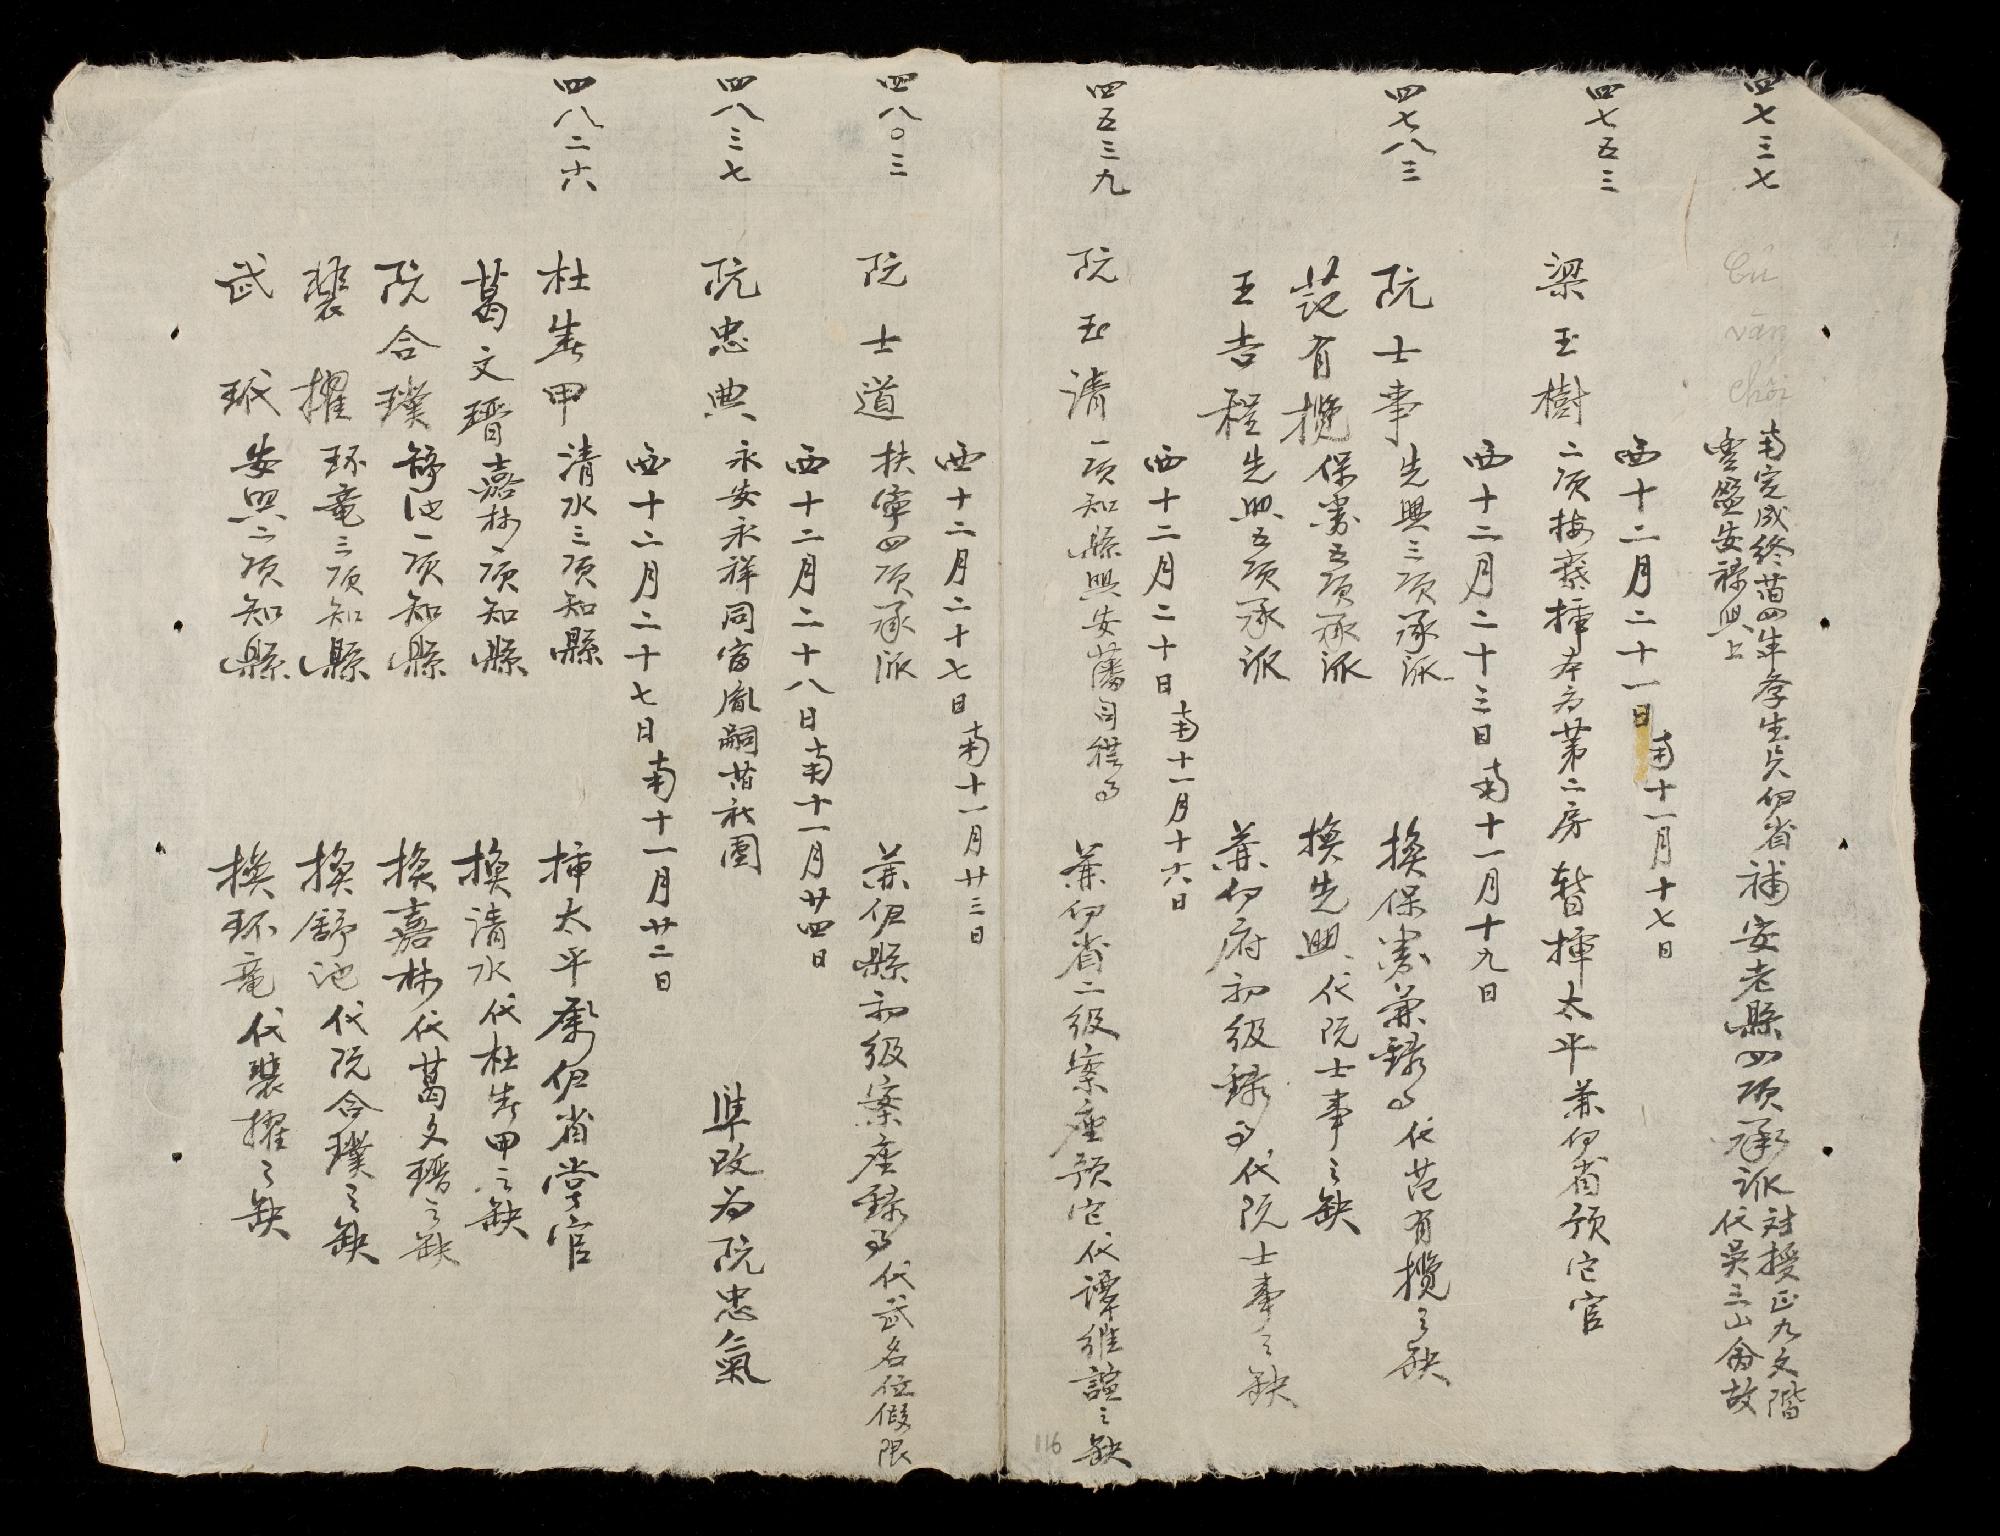 四七三七
Cu văn chôi
南定成終苗四年孝生貟伊省補安老縣四項承派
社授正九文階
代吳三山侖故
西十二月二十一日南十一月十七日
四七五三
梁玉樹 二項 本 为苐二房 暫揮太平 兼伊省預它官
西十二月二十三日南十一月十九日
四七八三
阮士事 先興三項承派 換保 兼録事代范有攬之缺
范有攬 保 五項承派 換先興代阮士事之缺
王吉程 先興五項承派 兼伊府初級録事代阮士事之缺
西十二月二十日南十一月十六日
四五三九
阮玉清 一項知縣興安藩司 兼伊省二級案座預它代譚維諠之缺
116
西十二月二十七日南十一月廿三日
四八〇三
阮士道 扶寧四項承派 兼伊縣初級案座録事代武名位假限
西十二月二十八日南十一月廿四日
四八三七
阮忠典 永安永祥同富胤嗣 社團 準改为阮忠氣
西十二月二十七日南十一月廿二日
四八二六
杜 甲 清水三項知縣 揷太平 伊省堂官
葛文瑨 嘉林一項知縣 換清水代杜 甲之缺
阮合璞 舒池一項知縣 換嘉林代葛文瑨之缺
裴擢 环竜三項知縣 換舒池代阮合璞之缺
武玳 安興二項知縣 換环竜代裴擢之缺